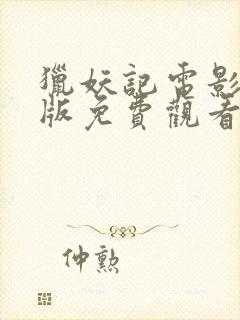 獵妖記電影
版免費觀看
仲勲